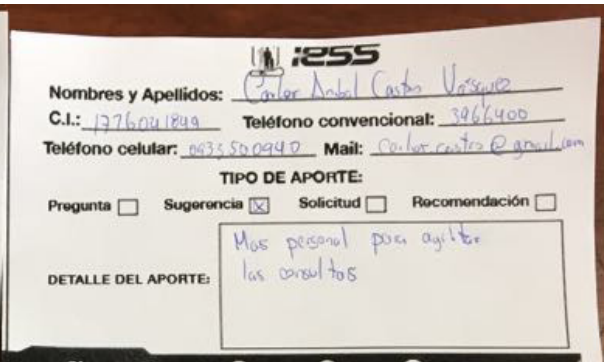 iess
Nombres y Apellidos: Carlos Anibal Castro Vásquez
C.I.: Teléfono convencional: 3966400
Teléfono celular: Mail: carlos.castro@gmail.com
TIPO DE APORTE:
Pregunta Sugerencia X Solicitud Recomendación
DETALLE DEL APORTE:
Mas personal para agilitar
las consultas